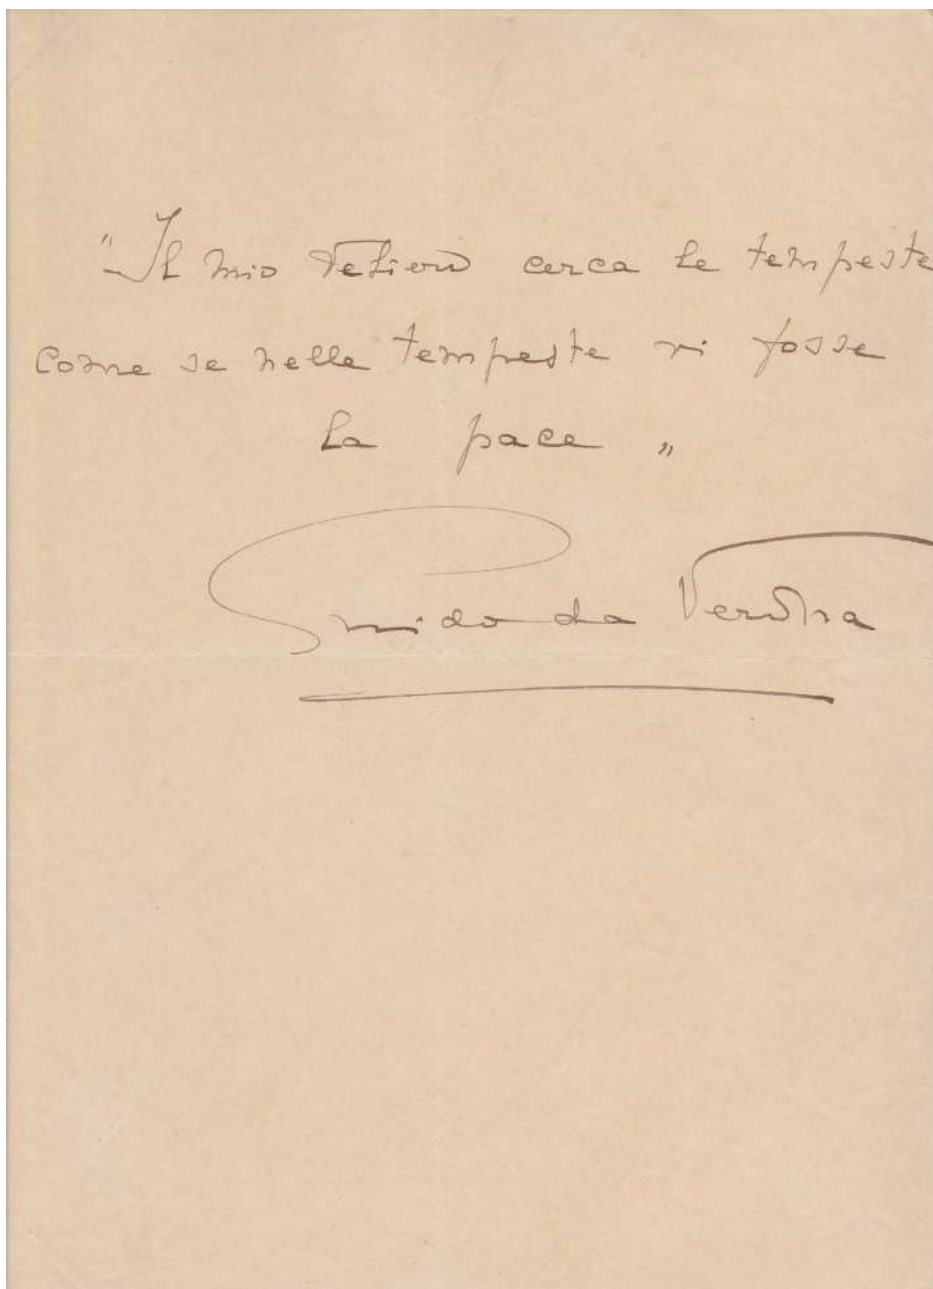 "Il mio Veliero cerca le tempeste
come se nelle tempeste vi fosse
la pace "
Guido da Verona